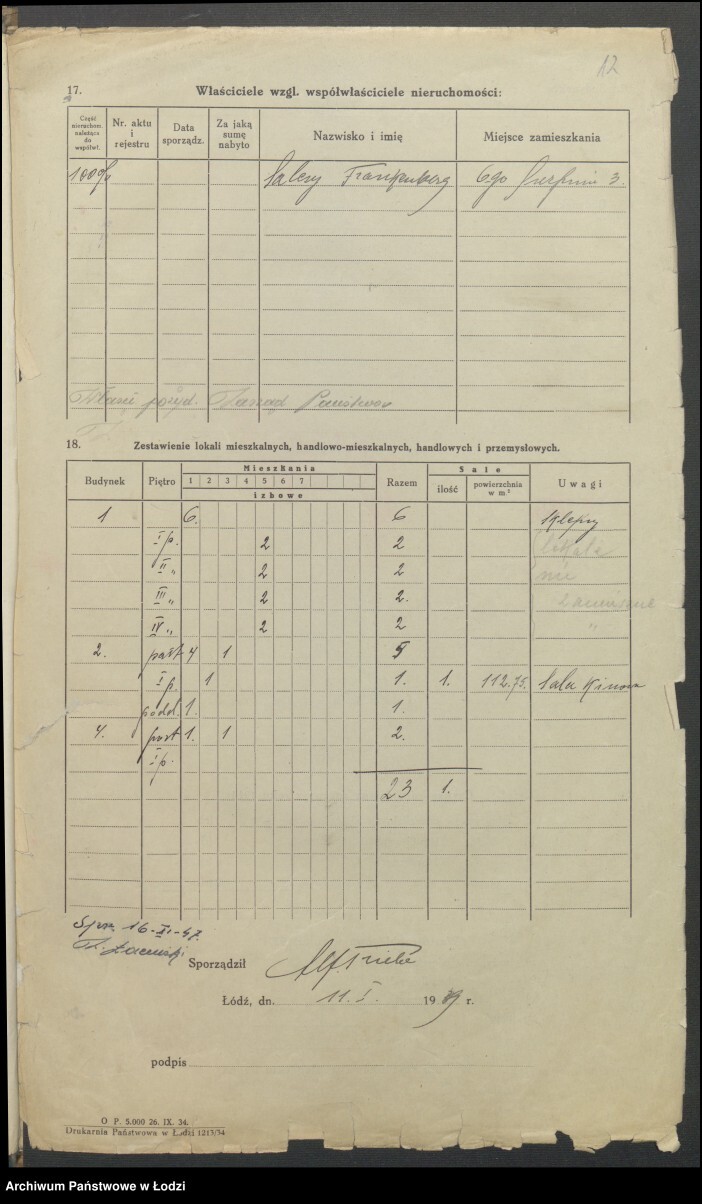 12
17.
Właściciele wzgl. współwłaściciele nieruchomości:
Część nieruchom. należąca do współwł.
Nr. aktu i rejestru
Data sporządz.
Za jaką sumę nabyto
Nazwisko i imię
Miejsce zamieszkania
100% Frankenberg 6go Sierpnia 3.
Państwow
18.
Zestawienie lokali mieszkalnych, handlowo-mieszkalnych, handlowych i przemysłowych.
Budynek Piętro Mieszkania Razem Sale Uwagi
1 2 3 4 5 6 7
izbowe
ilość powierzchnia w m²
1 6. 6 sklepy
I p. 2 2 lokale
II „ 2 2 nie
III „ 2 2.
IV „ 2 2 „
2. part 4 1 5
I p. 1 1. 1. 112.75. Sala Kinowa
podd. 1. 1.
4. part 1. 1 2.
I p.
23 1.
Spr. 16-XI-47.
Sporządził
Łódź, dn. 11. I. 1939 r.
podpis
O P. 5.000 26. IX. 34.
Drukarnia Państwowa w Łodzi 1213/34
Archiwum Państwowe w Łodzi